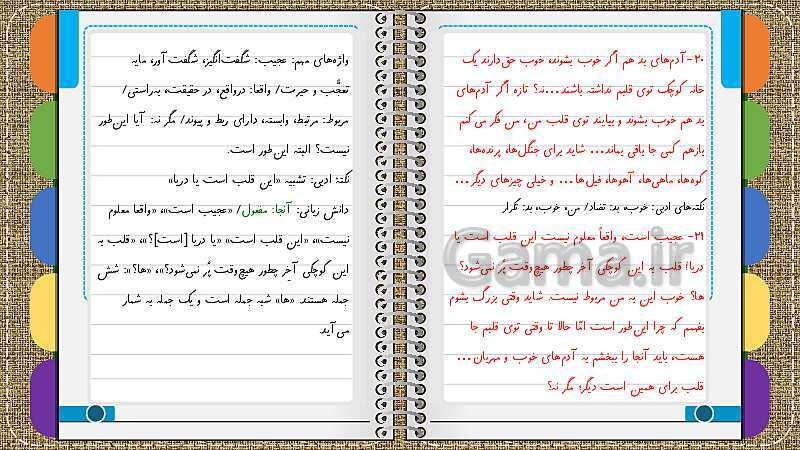 ۲۰- آدم‌های بد هم اگر خوب بشوند، خوب حق دارند یک
خانه کوچک توی قلبم نداشته باشند...نه؟ تازه اگر آدم‌های
بد هم خوب بشوند و بیایند توی قلب من، من فکر می کنم
بازهم کمی جا باقی بماند... شاید برای جنگل‌ها، پرنده‌ها،
کوه‌ها، ماهی‌ها، آهوها، فیل‌ها... و خیلی چیزهای دیگر...
نکته‌های ادبی: خوب، بد: تضاد/ من، خوب، بد: تکرار
۲۱- عجیب است، واقعاً معلوم نیست این قلب است یا
دریا! قلب به این کوچکی آخر چطور هیچ‌وقت پر نمی‌شود؟
ها؟ خوب این به من مربوط نیست. شاید وقتی بزرگ بشوم
بفهمم که چرا این‌طور است امّا حالا تا وقتی توی قلبم جا
هست، باید آنجا را ببخشم به آدم‌های خوب و مهربان...
قلب برای همین است دیگر؛ مگر نه؟
Gama.ir
واژه‌های مهم: عجیب: شگفت‌انگیز، شگفت آور، مایه
تعجُّب و حیرت/ واقعا: درواقع، در حقیقت، به‌راستی/
مربوط: مرتبط، وابسته، دارای ربط و پیوند/ مگر نه: آیا این‌طور
نیست؟ البته این‌طور است.
نکتهٔ ادبی: تشبیه «این قلب است یا دریا»
دانش زبانی: آنجا: مفعول/ «عجیب است»، «واقعا معلوم
نیست»، «این قلب است» «یا دریا [است]؟»، «قلب به
این کوچکی آخر چطور هیچ‌وقت پُر نمی‌شود؟»، «ها؟»: شش
جمله هستند. «ها» شبه جمله است و یک جمله به شمار
می آید.